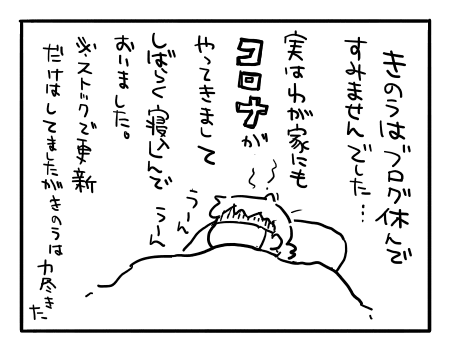 きのうはブログ休んで
すみませんでした…
実はわが家にも
コロナが
やってきまして
しばらく寝込んで
おいました。
※ストックで更新
だけはしてましたがきのうは力尽きた
うーん
うーん